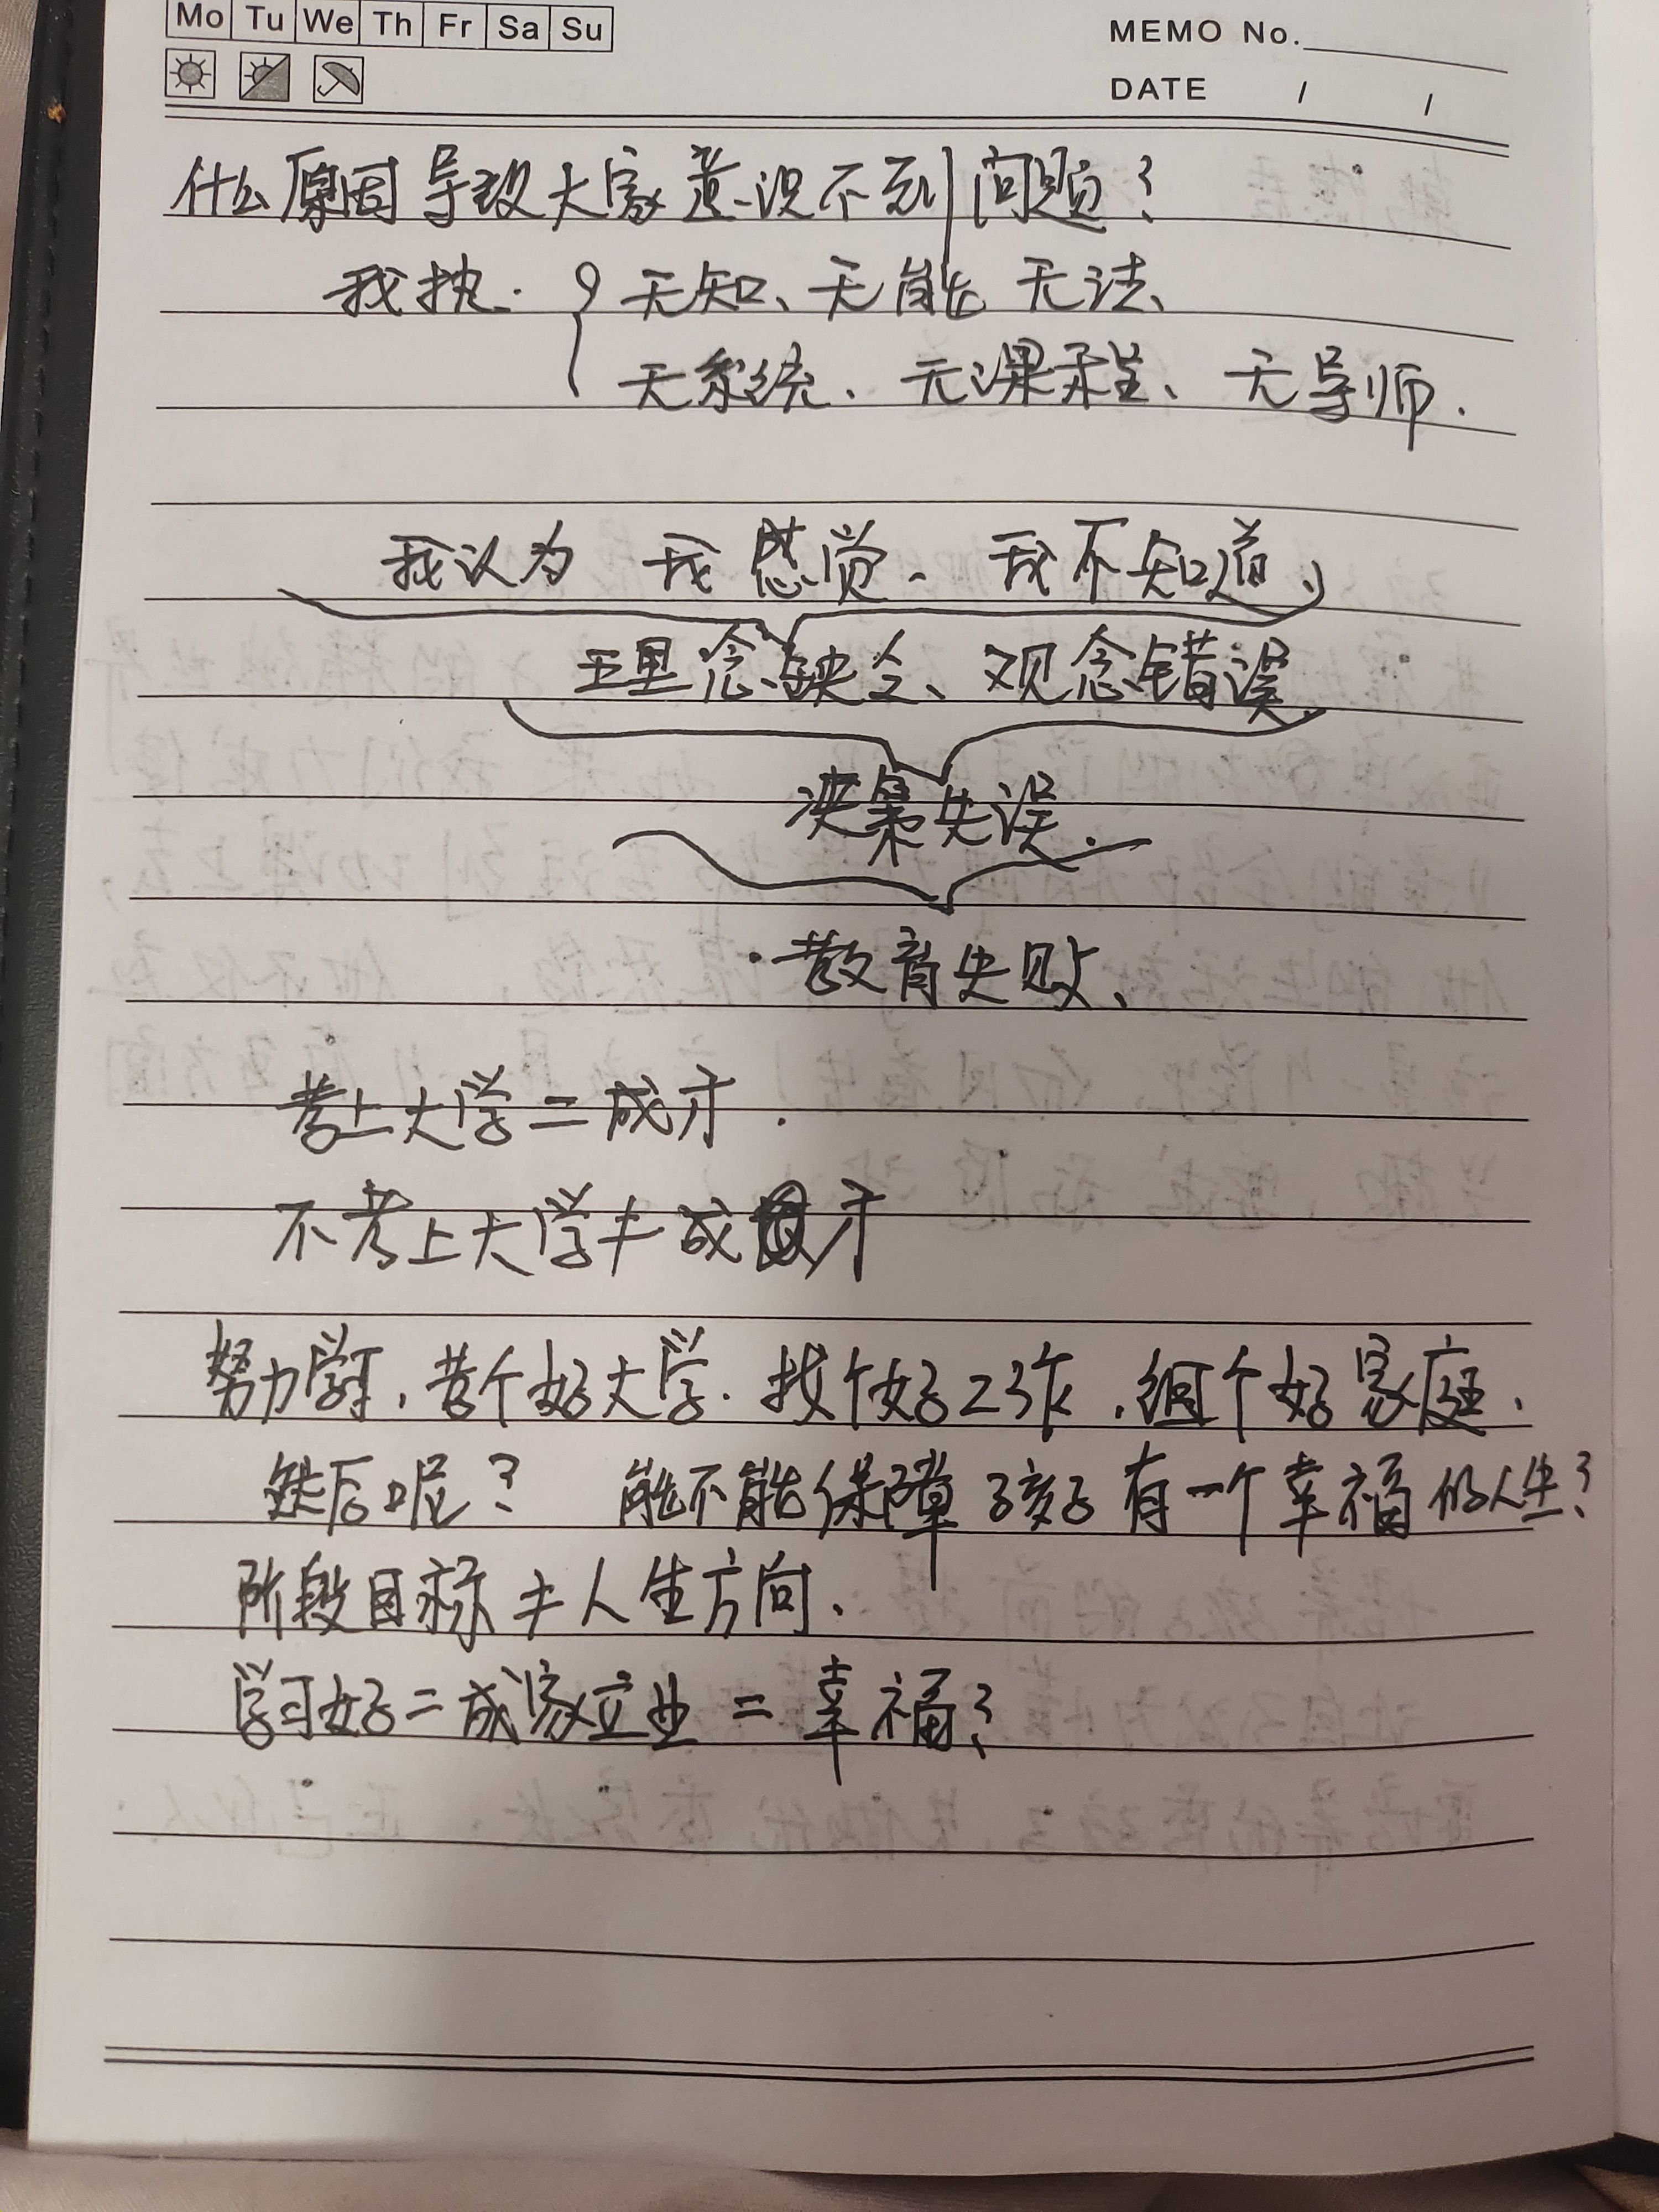 Mo Tu We Th Fr Sa Su
MEMO No.
DATE / /
什么原因导致大家意识不到问题?
我执. 无知、无能 无法、
无系统、无课程、无导师.
我认为 我感觉、我不知道、
理念缺乏、观念错误.
决策失误.
·教育失败、
考上大学=成才.
不考上大学≠成才
努力学习,考个好大学.找个好工作,组个好家庭.
然后呢? 能不能保障孩子有一个幸福的人生?
阶段目标≠人生方向.
学习好=成家立业=幸福?